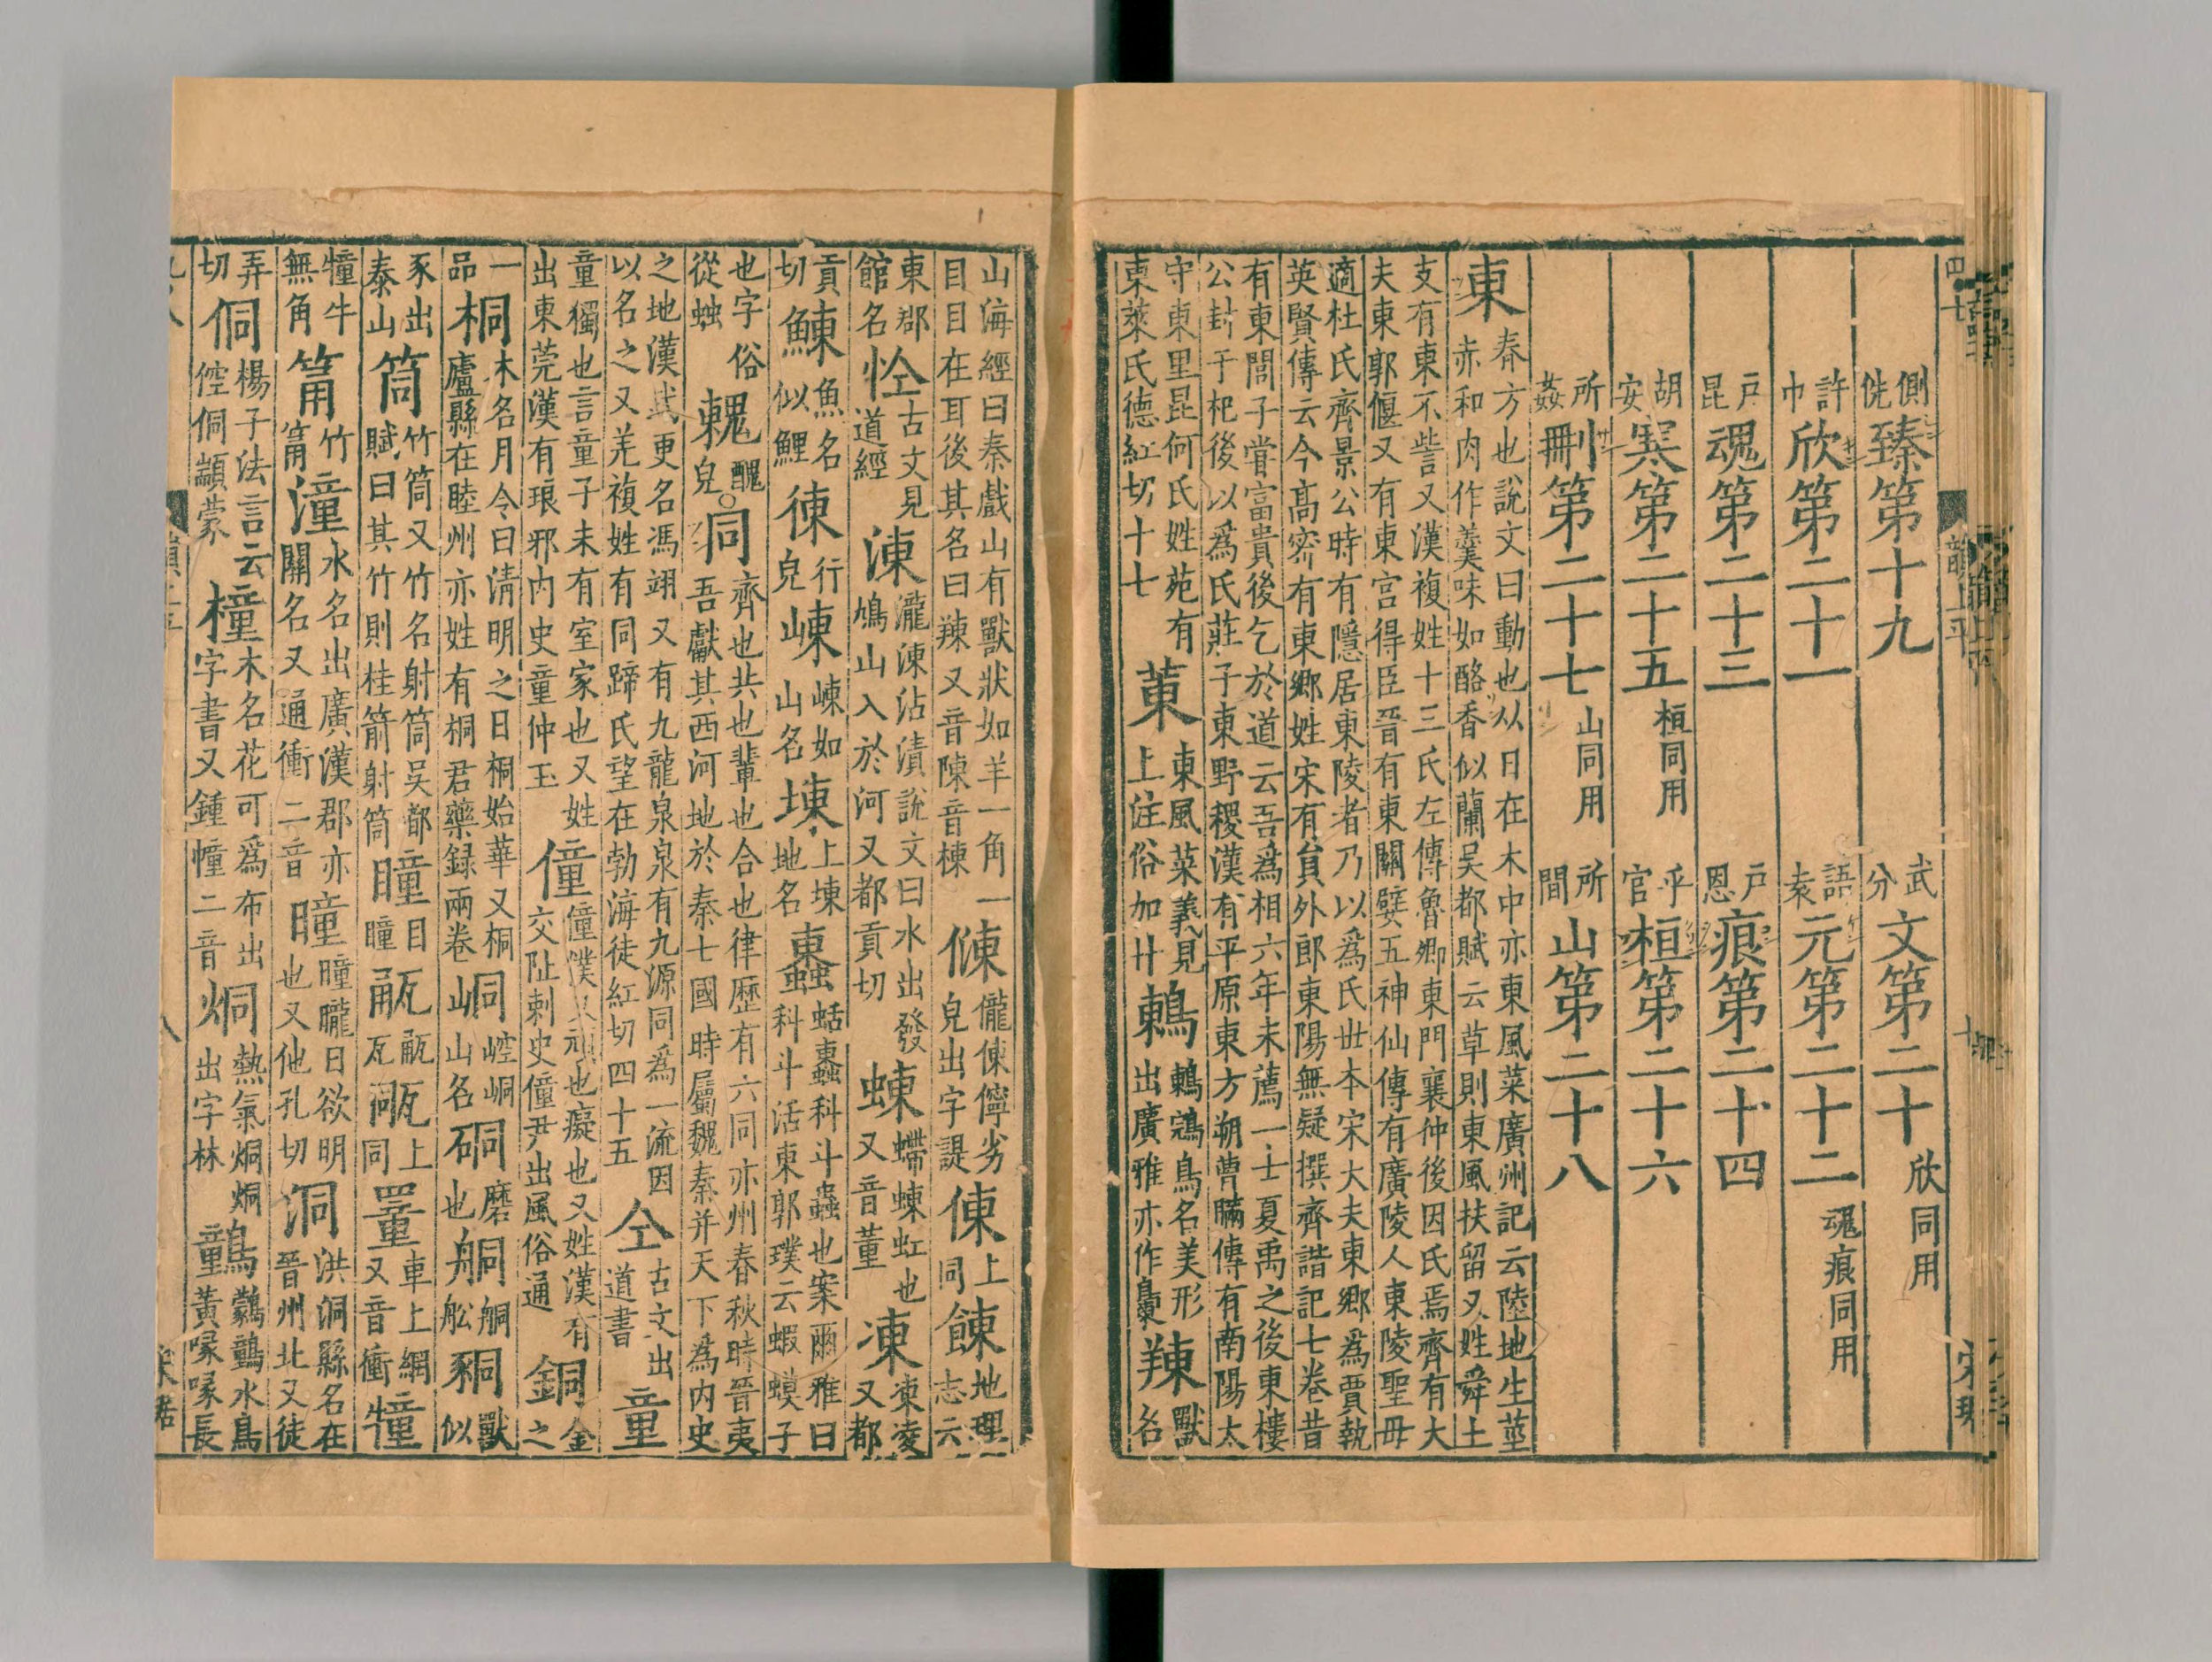 側詵臻第十九 武分文第二十欣同用
許巾欣第二十一 語袁元第二十二魂痕同用
戶昆魂第二十三 戶恩痕第二十四
胡安寒第二十五桓同用 乎官桓第二十六
所姦刪第二十七山同用 所間山第二十八
東春方也說文曰動也从日在木中亦東風菜廣州記云陸地生莖赤和肉作羹味如酪香似蘭吳都賦云草則東風扶留又姓舜七
支有東不訾又漢複姓十三氏左傳魯卿東門襄仲後因氏焉齊有大夫東郭偃又有東宮得臣晉有東關嬖五神仙傳有廣陵人東陵聖母
適杜氏齊景公時有隱居東陵者乃以為氏世本宋大夫東鄉為賈執英賢傳云今高密有東鄉姓宋有員外郎東陽無疑撰齊諧記七卷昔
有東閭子嘗富貴後乞於道云吾為相六年未薦一士夏禹之後東樓公封于杞後以為氏莊子東野稷漢有平原東方朔曹瞞傳有南陽太
守東里昆何氏姓苑有東萊氏德紅切十七 菄東風菜義見上注俗加艹 鶇鶇鵍鳥名美形出廣雅亦作𪂝 𢘐獸名
山海經曰秦戲山有獸狀如羊一角一目目在耳後其名曰𢘐又音陳音棟 㑈儱㑈儜劣皃出字諟 倲上同 餗地理志云
東郡館名 怣古文見道經 涷瀧涷沾漬說文曰水出發鳩山入於河又都貢切 蝀螮蝀虹也又音董 凍凍凌又都
貢切 鯟魚名似鯉 徚行皃 崠崠如山名 埬上埬地名 𧓕蛞𧓕科斗蟲也案爾雅曰科斗活東郭璞云蝦蟆子
也字俗從䖵 䰤醜皃 同齊也共也輩也合也律歷有六同亦州春秋時晉夷吾獻其西河地於秦七國時屬魏秦并天下為內史
之地漢武更名馮翊又有九龍泉泉有九源同為一流因以名之又羌複姓有同蹄氏望在勃海徒紅切四十五 仝古文出道書 童
童獨也言童子未有室家也又姓出東莞漢有琅邪內史童仲玉 僮僮僕又頑也癡也又姓漢有交阯刺史僮尹出風俗通 銅金之
一品 桐木名月令曰清明之日桐始華又桐廬縣在睦州亦姓有桐君藥録兩卷 峒崆峒山名 硐磨也 䑸舸舩 𧱁獸似
豕出泰山 筒竹筒又竹名射筒吳都賦曰其竹則桂箭射筒 瞳目瞳 㼧㼿瓦 㼿上同 罿車上網又音衝 犝
犝牛無角 筩竹筩 潼水名出廣漢郡亦關名又通衝二音 曈曈曨日欲明也又他孔切 洞洪洞縣名在晉州北又徒
弄切 侗楊子法言云倥侗顓蒙 橦木名花可為布出字書又鍾幢二音 烔熱氣烔烔出字林 鷾鸏鷾水鳥黃喙喙長